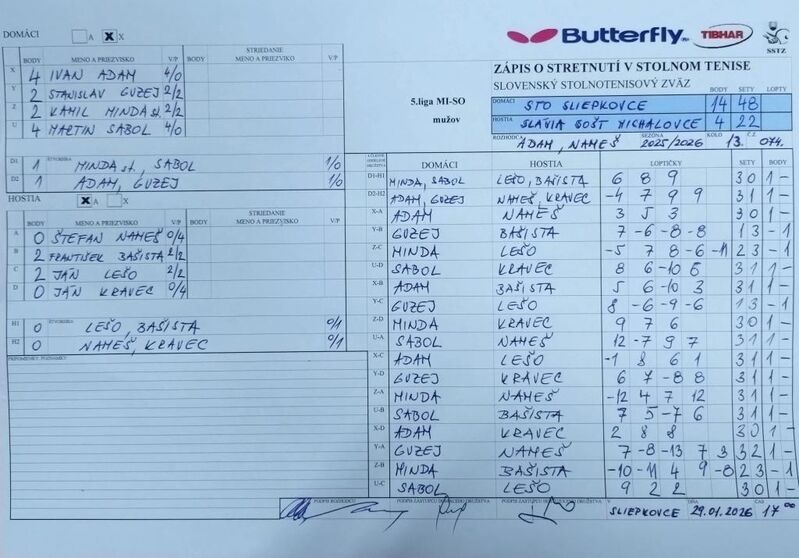 DOMÁCI A X X
BODY MENO A PRIEZVISKO V/P BODY STRIEDANIE MENO A PRIEZVISKO V/P
X 4 IVAN ADAM 4/0
Y 2 STANISLAV GUZEJ 2/2
Z 2 KAMIL MINDA st. 2/2
U 4 MARTIN SABOL 4/0
D1 1 ŠTVORHRA MINDA st., SABOL 1/0
D2 1 ADAM, GUZEJ 1/0
HOSTIA X X
BODY MENO A PRIEZVISKO V/P BODY STRIEDANIE MENO A PRIEZVISKO V/P
A 0 ŠTEFAN NAMEŠ 0/4
B 2 FRANTIŠEK BAŠISTA 2/2
C 2 JÁN LEŠO 2/2
D 0 JÁN KRAVEC 0/4
H1 0 ŠTVORHRA LEŠO, BAŠISTA 0/1
H2 0 NAMEŠ, KRAVEC 0/1
PRIPOMIENKY, POZNÁMKY
Butterfly TIBHAR SSTZ
ZÁPIS O STRETNUTÍ V STOLNOM TENISE
SLOVENSKÝ STOLNOTENISOVÝ ZVÄZ
5.liga MI-SO
mužov
BODY SETY LOPTY
DOMÁCI STO SLIEPKOVCE 14 48
HOSTIA SLAVIA BOŠT MICHALOVCE 4 22
ROZHODCA ADAM, NAMEŠ SEZÓNA 2025/2026 KOLO 13. Č.Z. 074.
DOMÁCI HOSTIA LOPTIČKY SETY BODY
D1-H1 MINDA, SABOL LEŠO, BAŠISTA 6 8 9 3 0 1 -
D2-H2 ADAM, GUZEJ NAMEŠ, KRAVEC -4 7 9 9 3 1 1 -
X-A ADAM NAMEŠ 3 5 3 3 0 1 -
Y-B GUZEJ BAŠISTA 7 -6 -8 -8 1 3 - 1
Z-C MINDA LEŠO -5 7 8 -6 -11 2 3 - 1
U-D SABOL KRAVEC 8 6 -10 5 3 1 1 -
X-B ADAM BAŠISTA 5 6 -10 3 3 1 1 -
Y-C GUZEJ LEŠO 8 -6 -9 -6 1 3 - 1
Z-D MINDA KRAVEC 9 7 6 3 0 1 -
U-A SABOL NAMEŠ 12 -7 9 7 3 1 1 -
X-C ADAM LEŠO -1 8 6 1 3 1 1 -
Y-D GUZEJ KRAVEC 6 7 -8 8 3 1 1 -
Z-A MINDA NAMEŠ -12 4 7 12 3 1 1 -
U-B SABOL BAŠISTA 7 5 -7 6 3 1 1 -
X-D ADAM KRAVEC 2 8 8 3 0 1 -
Y-A GUZEJ NAMEŠ 7 -8 -13 7 3 3 2 1 -
Z-B MINDA BAŠISTA -10 -11 4 9 -8 2 3 - 1
U-C SABOL LEŠO 9 2 2 3 0 1 -
PODPIS ROZHODCU PODPIS ZÁSTUPCU DOMÁCEHO DRUŽSTVA PODPIS ZÁSTUPCU HOSŤUJÚCEHO DRUŽSTVA V SLIEPKOVCE DŇA 29.01.2026 ČAS 17 00